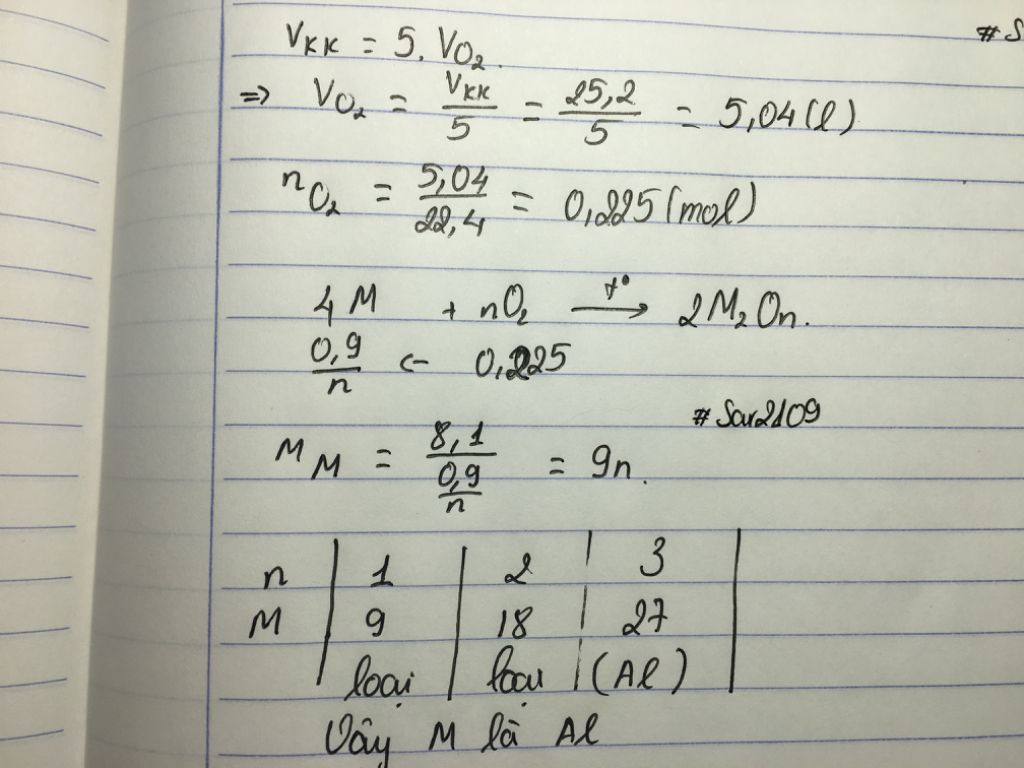 # S
V_KK = 5. V_O₂.
=> V_O₂ = V_KK/5 = 25,2/5 = 5,04 (l)
n_O₂ = 5,04/22,4 = 0,225 (mol)
4M + nO₂ —t°→ 2M₂On.
0,9/n <- 0,225
# Sar2109
M_M = 8,1/(0,9/n) = 9n.
n | 1 | 2 | 3 |
M | 9 | 18 | 27 |
loại | loại | (Al) |
Vây M là Al